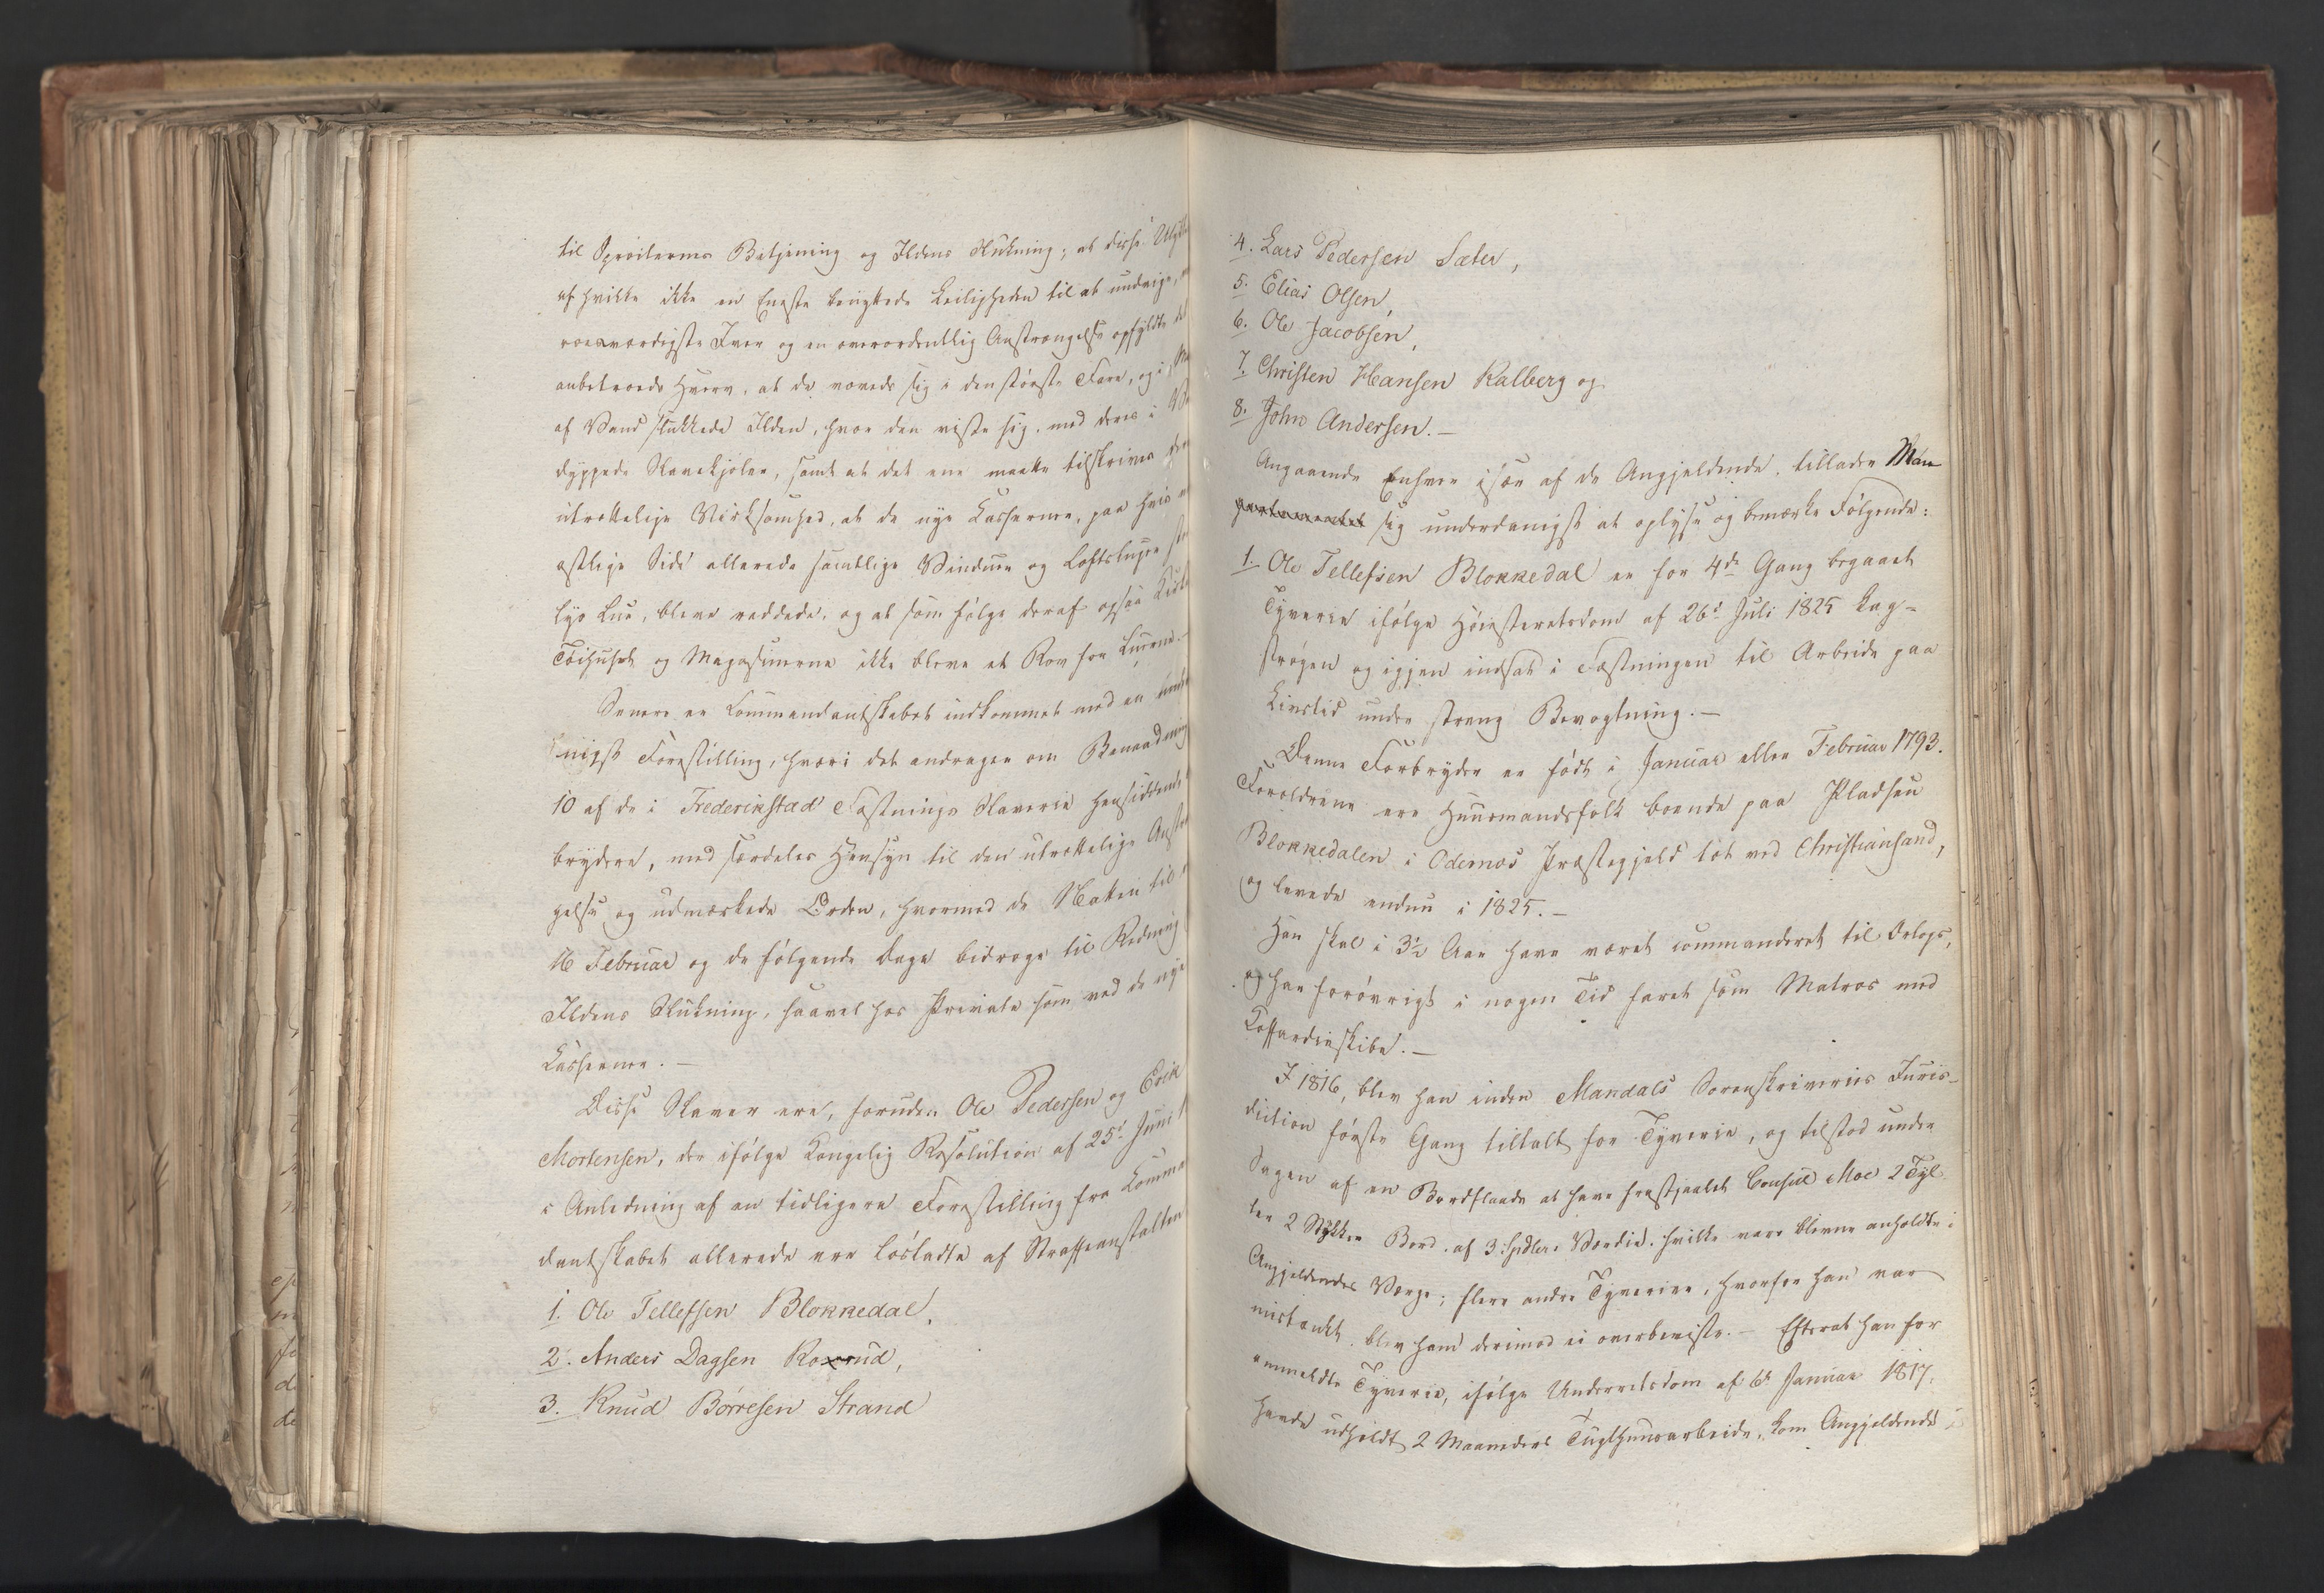 til Sprøiternes Betjening og Ildens Slukning; at disse
af hvilke ikke en Eneste benyttede Leiligheden til at undvige,
roesværdigste Iver og en overordentlig Anstrængelse opfyldte
anbetroede Hverv, at de vovede sig i den største Fare, og i
af Vand slukkede Ilden, hvor den viste sig, med deres i
dyppede Slavekjoler, samt at det ene maatte tilskrives
utrættelige Virksomhed, at de nye Casserner, paa hvis
østlige Side allerede samtlige Vinduer og Loftsluger
lys Lue, bleve reddede, og at som følge deraf ogsaa
Tøihuset og Magasinerne ikke bleve et Rov for Luerne.
Senere er Commandantskabet indkommet med en
nigst Forestilling, hvori det andrager om Benaadning
10 af de i Frederikstad Fæstnings Slaverie hensiddende
brydere, med særdeles Hensyn til den utrættelige
gelse og udmærkede Orden, hvormed de Natten til
16 Februar og de følgende Dage bidroge til Redning
Ildens Slukning, saavel hos Private som ved de nye
Casserner. —
Disse Slaver ere, foruden Ole Pedersen og Erik
Mortensen, der ifølge Kongelig Resolution af 25d Juni
i Anledning af en tidligere Forestilling fra
dantskabet allerede ere løsladte af Straffeanstalten
1. Ole Tellefsen Blokkedal,
2. Anders Dagsen
3. Knud Børresen Strand
4. Lars Pedersen Sæter,
5. Elias Olsen,
6. Ole Jacobsen,
7. Christen Hansen Kalberg og
8. John Andersen. —
Angaaende Enhver især af de Angjeldende, tillader Man
sig underdanigst at oplyse og bemærke Følgende:
1. Ole Tellefsen Blokkedal er for 4de Gang begaaet
Tyverie ifølge Høiesteretsdom af 26d Juli 1825 kag-
strøgen og igjen indsat i Fæstningen til Arbeide paa
Livstid under streng Bevogtning. —
Denne Forbryder er født i Januar eller Februar 1793.
Forældrene ere Huusmandsfolk boende paa Pladsen
Blokkedalen i Odernes Præstegjeld tæt ved Christiansand,
og levede endnu i 1825. —
Han skal i 3½ Aar have været commanderet til Orlogs,
og har forøvrigt i nogen Tid faret som Matros med
Coffardieskibe. —
I 1816, blev han inden Mandals Sorenskriveries Juris-
diction første Gang tiltalt for Tyverie, og tilstod under
Sagen af en Bordflaade at have frastjaalet Consul Moe 2 Tyl
ter 2 Stykker Bord, af 3 Spdlers Værdie, hvilke vare blevne anholdte i
Angjeldendes Værge; flere andre Tyverier, hvorfor han var
mistænkt, blev ham derimod ei overbeviste. — Efterat han for
ommeldte Tyverie, ifølge Underretsdom af 6d Januar 1817,
havde udholdt 2 Maaneders Tugthuusarbeide, kom Angjeldende